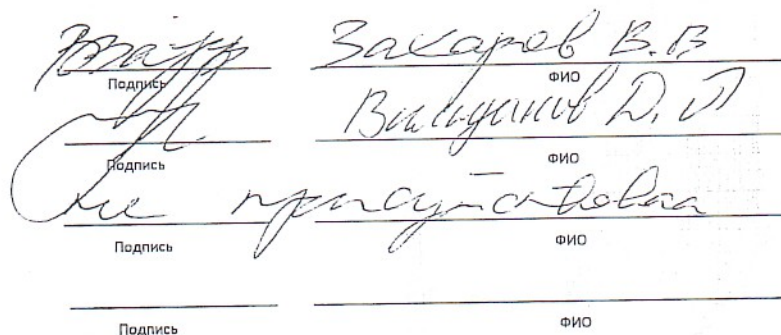 Захаров В.В
Подпись ФИО
Д.П
Подпись ФИО
не присутствовал
Подпись ФИО
Подпись ФИО